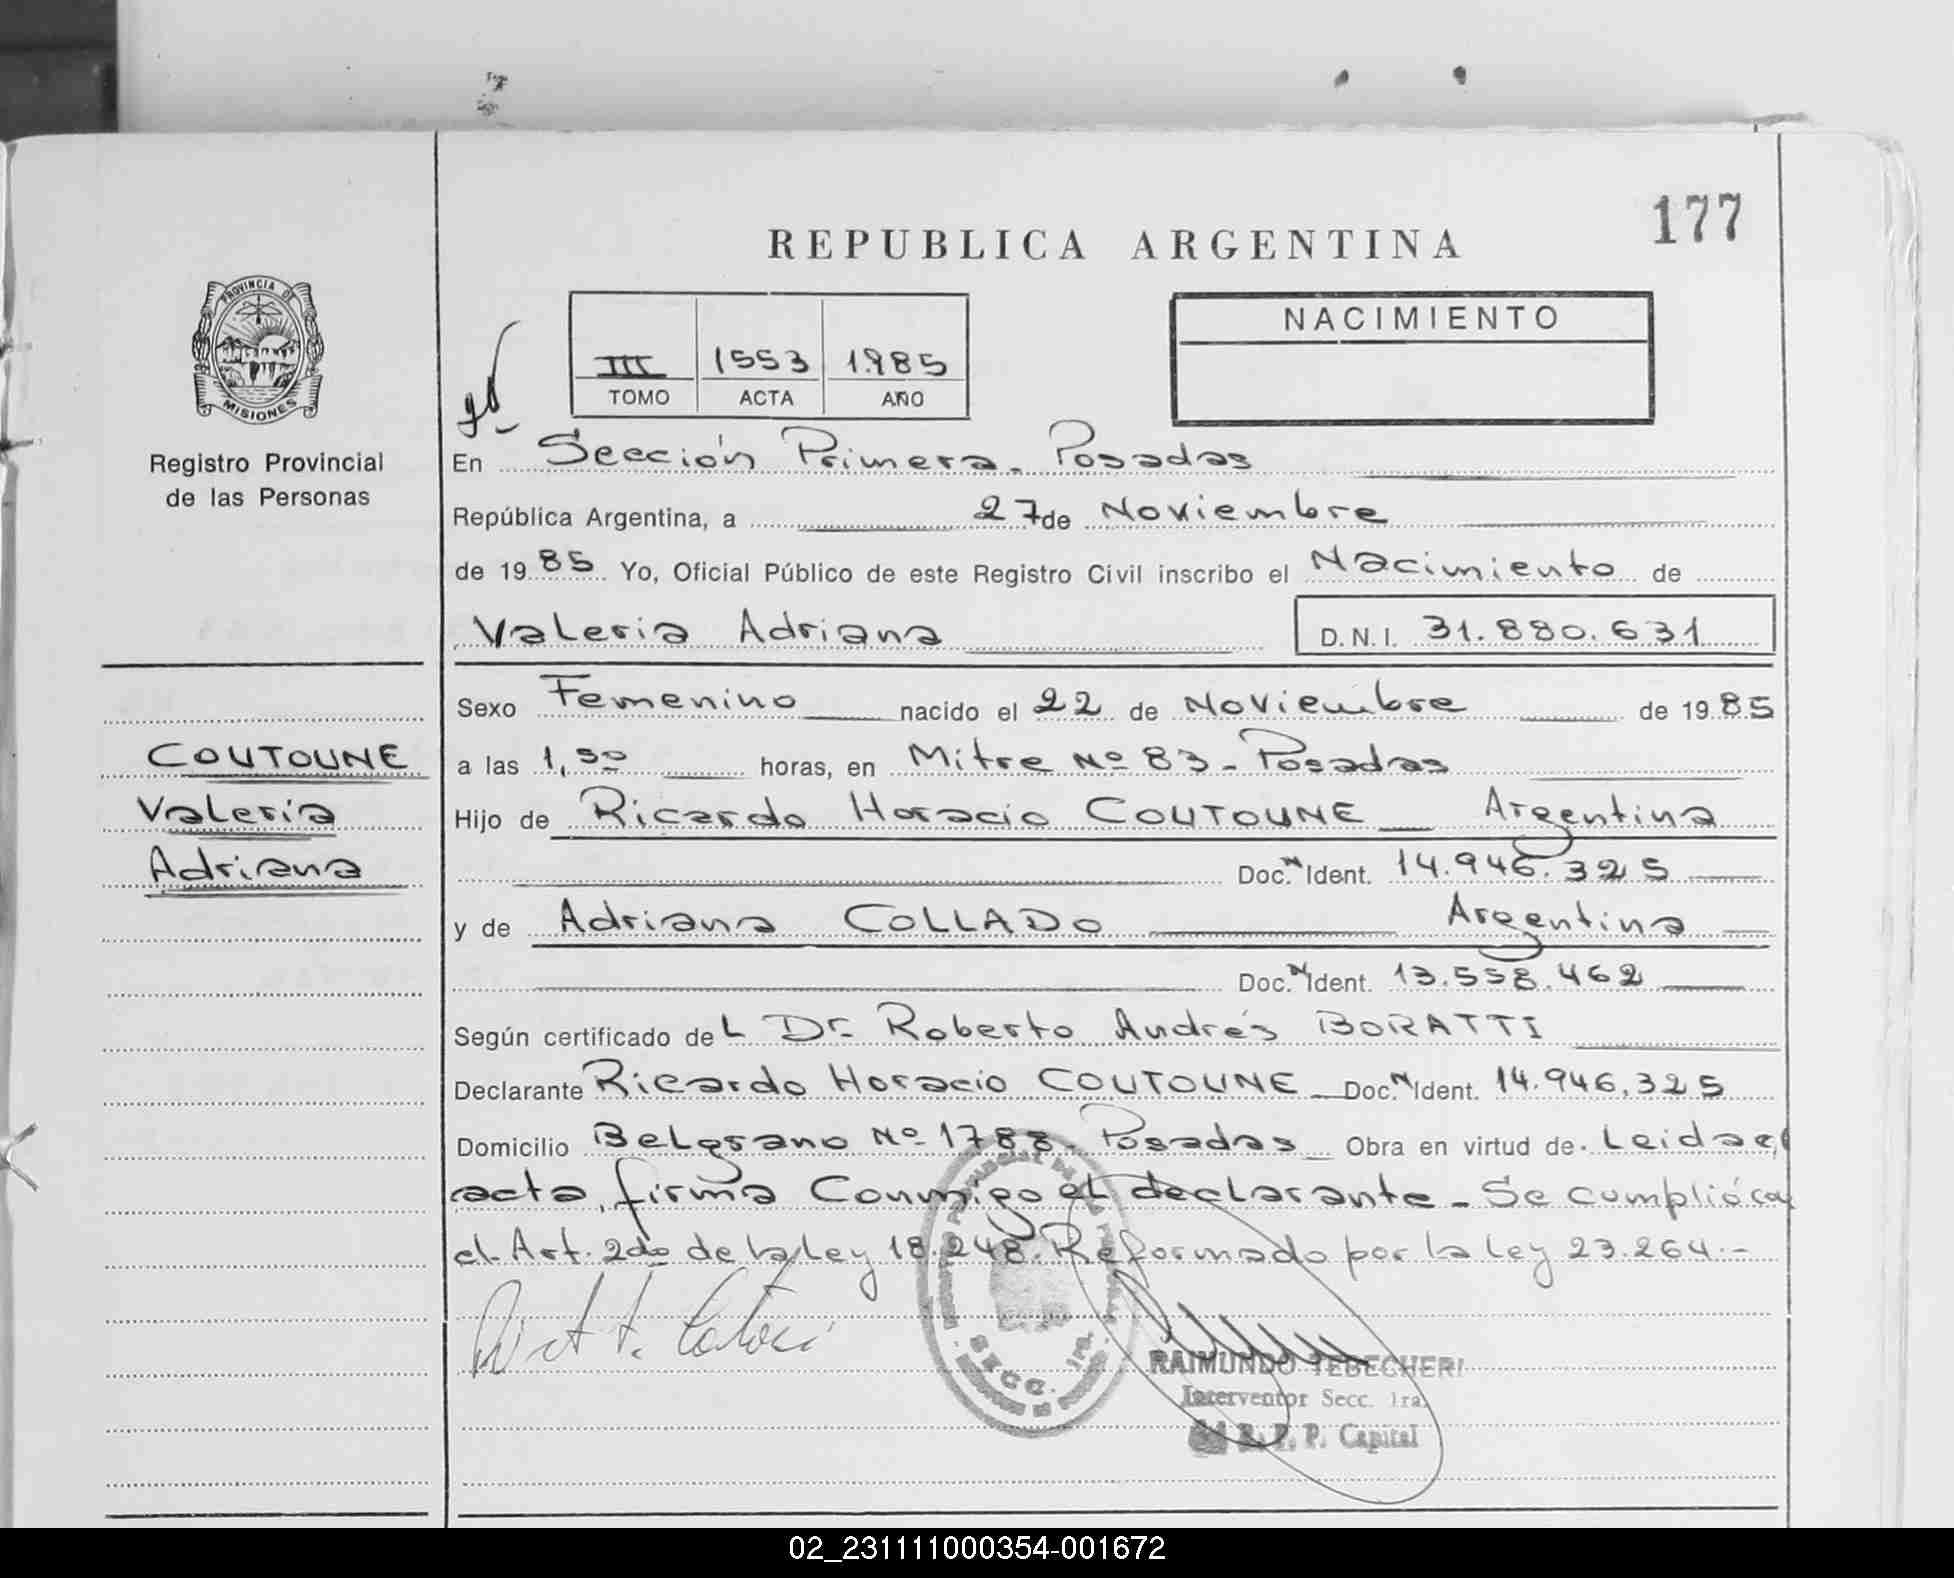 177
REPUBLICA ARGENTINA
PROVINCIA DE
MISIONES
Registro Provincial
de las Personas
III 1553 1.985
TOMO ACTA AÑO
NACIMIENTO
En Sección Primera. Posadas
República Argentina, a 27 de Noviembre
de 19 85 Yo, Oficial Público de este Registro Civil inscribo el Nacimiento de
Valeria Adriana D.N.I. 31.880.631
Sexo Femenino nacido el 22 de Noviembre de 19 85
COUTOUNE
Valeria
Adriana
a las 1,50 horas, en Mitre Nº 83 - Posadas
Hijo de Ricardo Horacio COUTOUNE Argentina
Doc. N Ident. 14.946.325
y de Adriana COLLADO Argentina
Doc. N Ident. 13.558.462
Según certificado del Dr. Roberto Andrés BORATTI
Declarante Ricardo Horacio COUTOUNE Doc. N Ident. 14.946.325
Domicilio Belgrano Nº 1788 - Posadas Obra en virtud de. Leida el
acta, firma Conmigo el declarante - Se cumplió con
el Art. 2do de la Ley 18.248. Reformado por la Ley 23.264.-
SECC. 1ra.
RAIMUNDO TEBECHERI
Interventor Secc. 1ra.
R. P. P. Capital
02_231111000354-001672